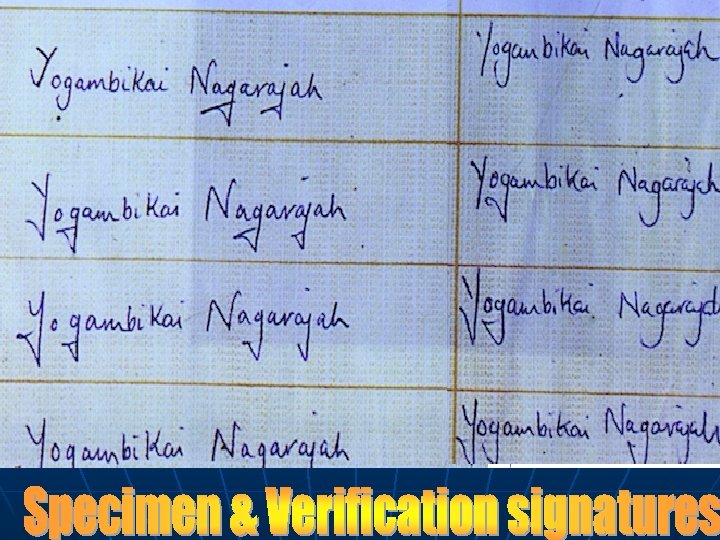 Yogambikai Nagarajah Yogambikai Nagarajah
Yogambikai Nagarajah Yogambikai Nagarajah
Yogambikai Nagarajah Yogambikai Nagarajah
Yogambikai Nagarajah Yogambikai Nagarajah
Specimen & Verification signatures